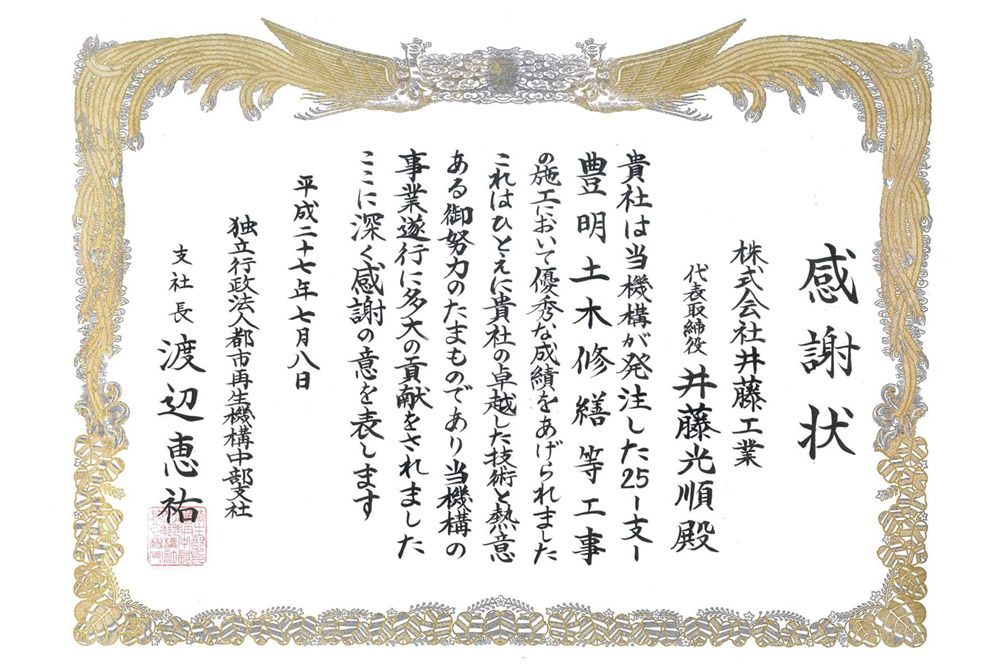 感謝状
株式会社井藤工業
代表取締役 井藤光順殿
貴社は当機構が発注した25ー支ー
豊明土木修繕等工事
の施工において優秀な成績をあげられました
これはひとえに貴社の卓越した技術と熱意
ある御努力のたまものであり当機構の
事業遂行に多大の貢献をされました
ここに深く感謝の意を表します
平成二十七年七月八日
独立行政法人都市再生機構中部支社
支社長 渡辺恵祐